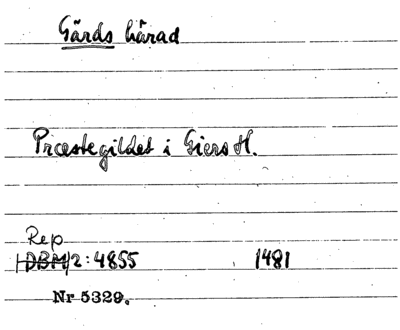 Gärds härad
Præstegildet i Giers H.
Rep
DBM 2:4855 1481
Nr 5329.